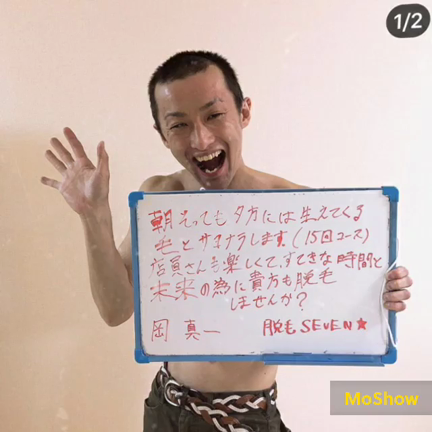 1/2
朝そっても夕方には生えてくる
毛とサヨナラします。(15回コース)
店員さんも楽しくて、すてきな時間と
未来の為に貴方も脱毛
しませんか?
岡 真一 脱毛SEVEN★
MoShow